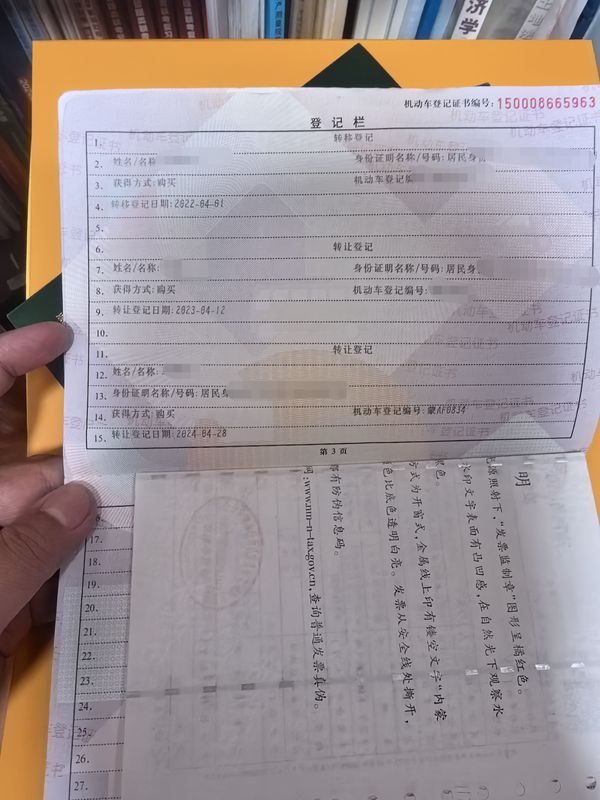 济学
机动车登记证书编号:150008665963
登记栏
1. 转移登记
2. 姓名/名称 身份证明名称/号码:居民身
3. 获得方式:购买 机动车登记
4. 转移登记日期:2022-04-01
5.
6. 转让登记
7. 姓名/名称: 身份证明名称/号码:居民身
8. 获得方式:购买 机动车登记编号:
9. 转让登记日期:2023-04-12
10.
11. 转让登记
12. 姓名/名称:
13. 身份证明名称/号码:居民身
14. 获得方式:购买 机动车登记编号:蒙AF0834
15. 转让登记日期:2024-04-28
第 3 页
17.
18.
19.
20.
21.
22.
23.
24.
25.
26.
27.
明
光源照射下,"发票监制章"图形呈橘红色。
水印文字表面有凸凹感,在自然光下观察水
黑色。
方式为开窗式,金属线上印有镂空文字"内蒙
色比底色透明白亮。发票从安全线处撕开,
都有防伪信息码。
网:www.nm-n-tax.gov.cn,查询普通发票真伪。